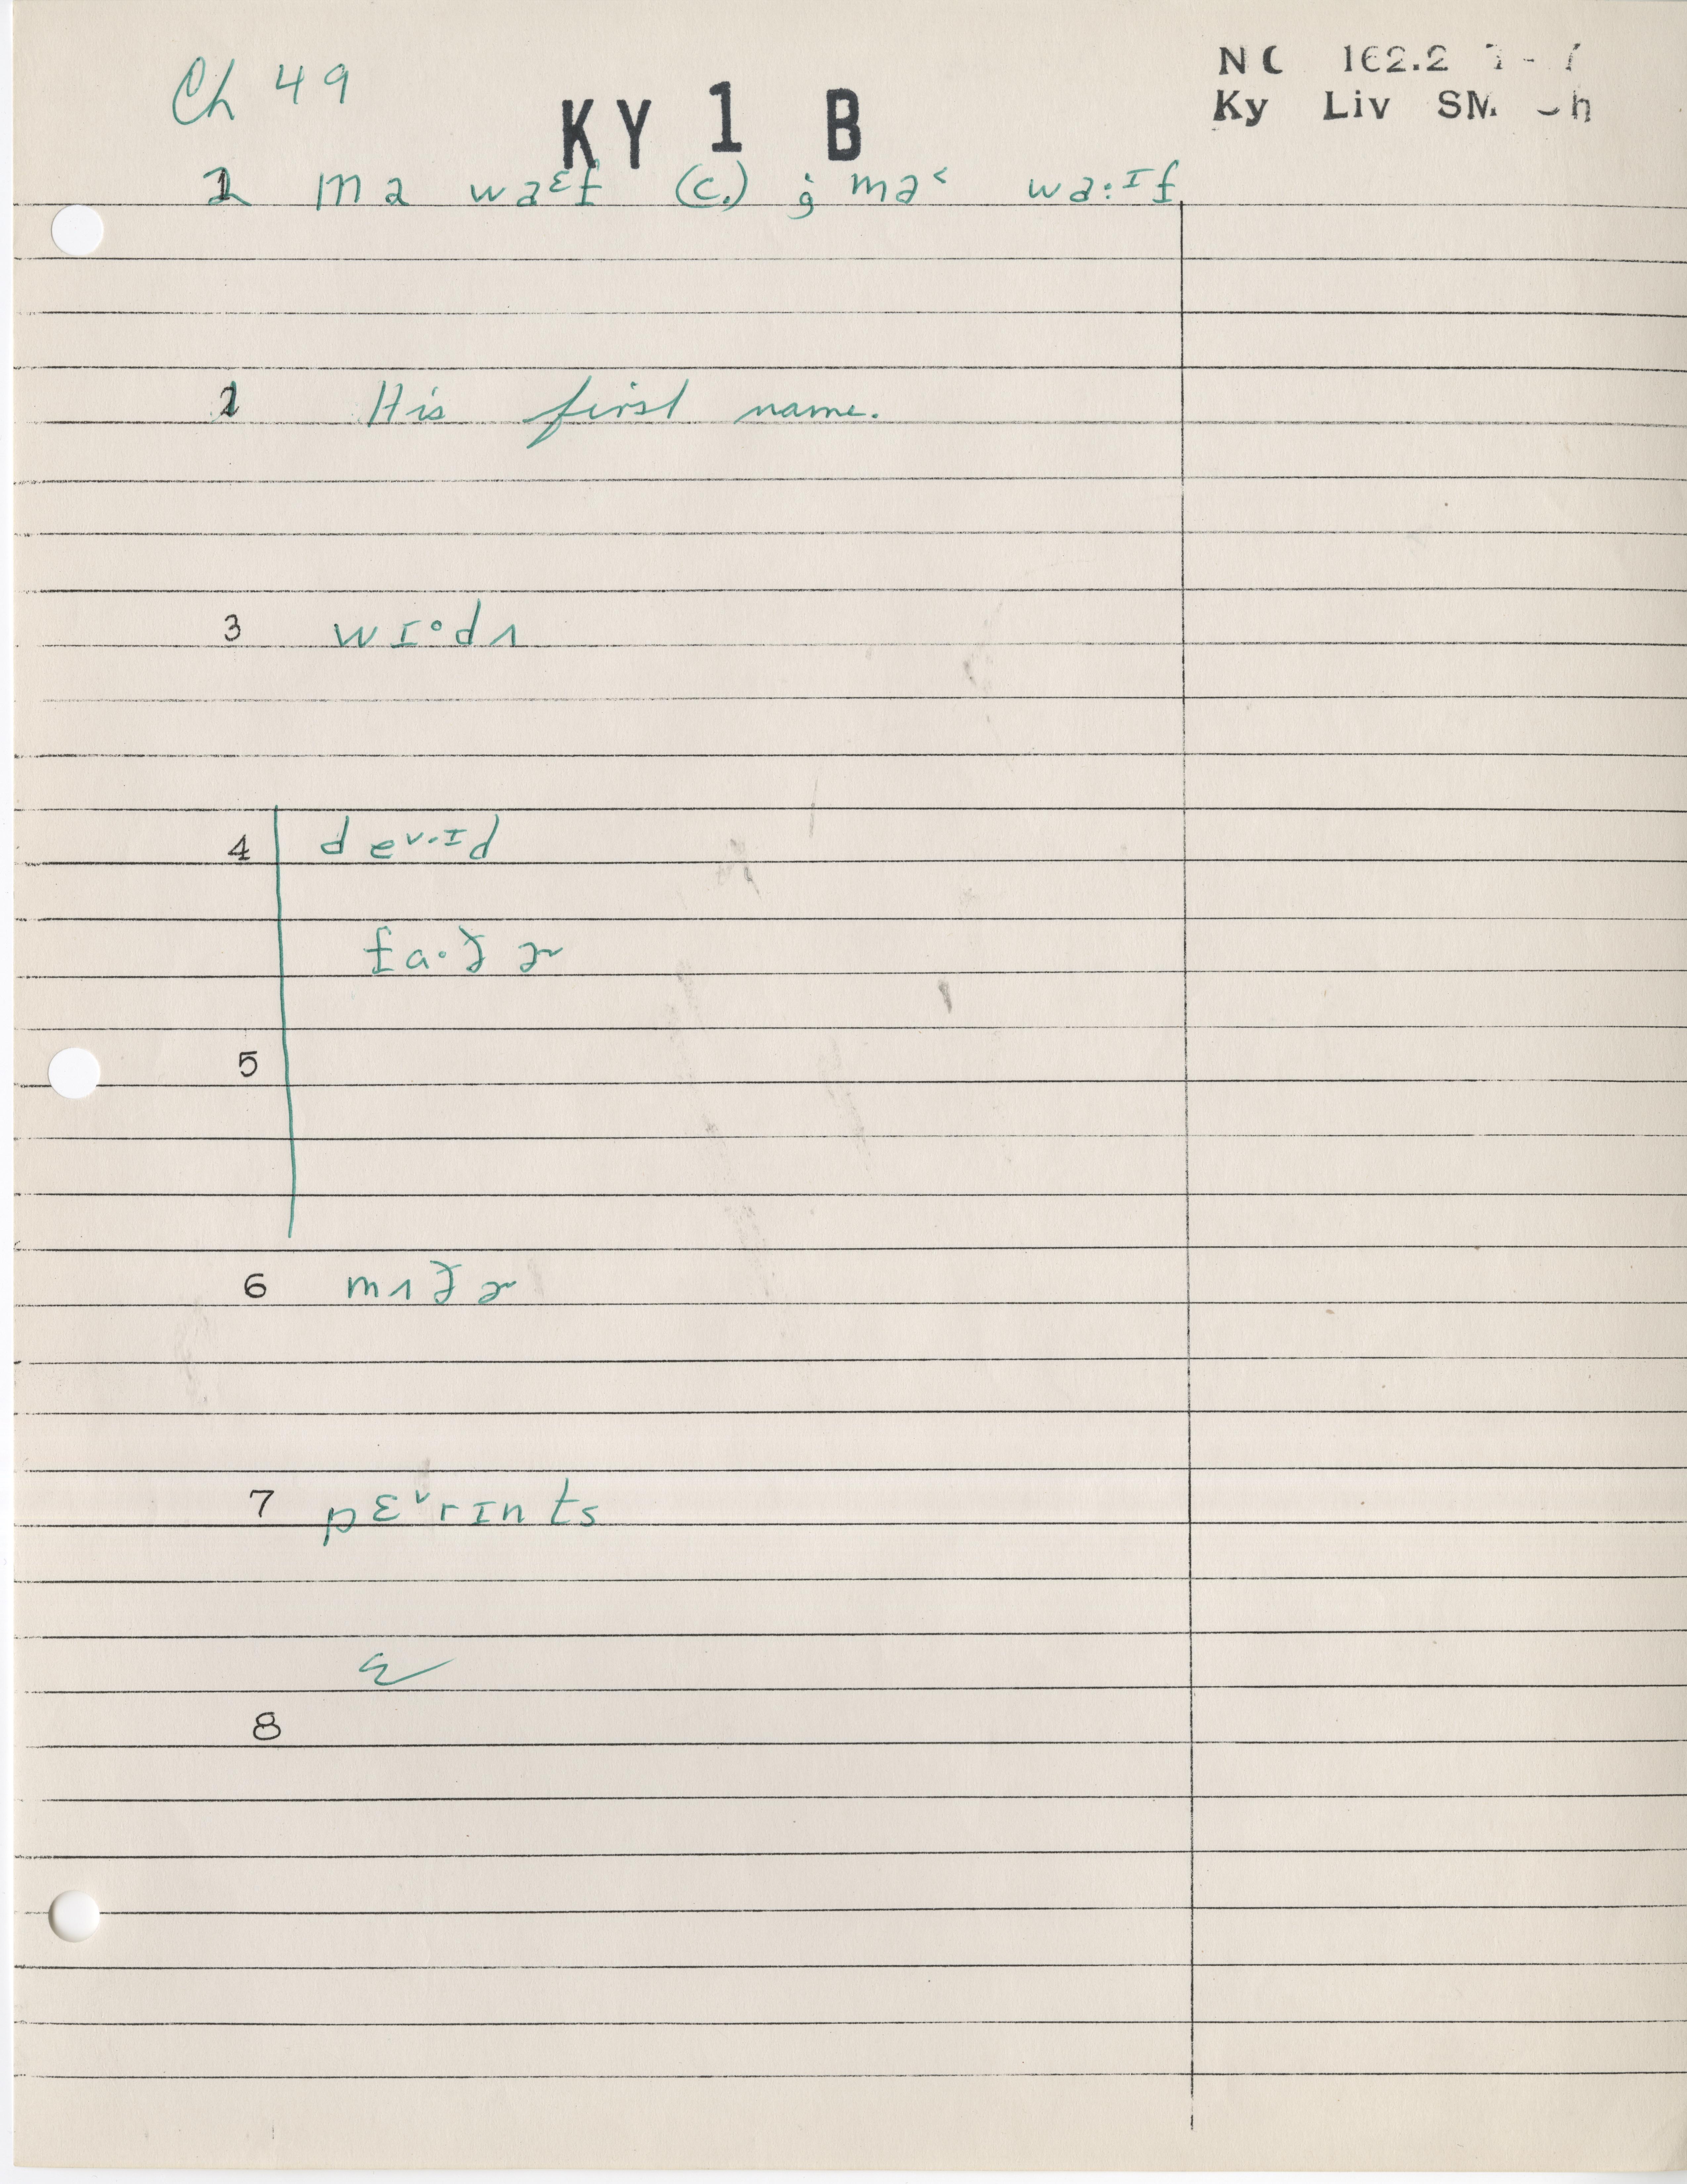 Ch 49
KY 1 B
NC 162.2
Ky Liv SM Ch
1 ma waᵋf (c.) ; ma˂ wa:ᶦf
2 His first name.
3 wɪ·dʌ
4 de˅·ɪd
fa·ðɚ
5
6 mʌðɚ
7 pɛ˅rɪnts
8